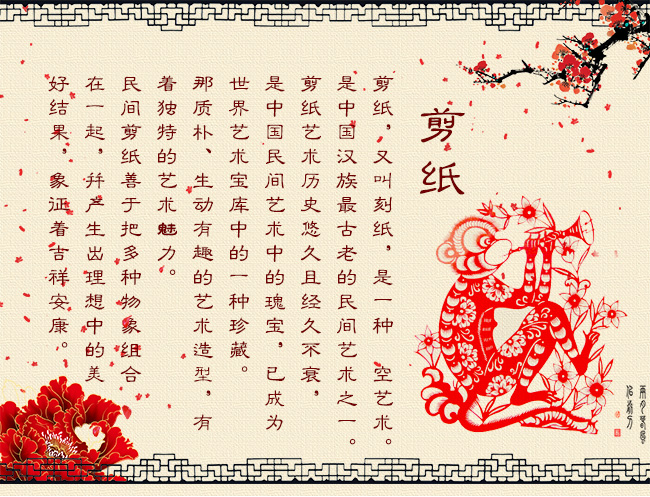 剪纸
剪纸，又叫刻纸，是一种 空艺术。
是中国汉族最古老的民间艺术之一。
剪纸艺术历史悠久且经久不衰，
是中国民间艺术中的瑰宝，已成为
世界艺术宝库中的一种珍藏。
那质朴、生动有趣的艺术造型，有
着独特的艺术魅力。
民间剪纸善于把多种物象组合
在一起，并产生出理想中的美
好结果，象征着吉祥安康。